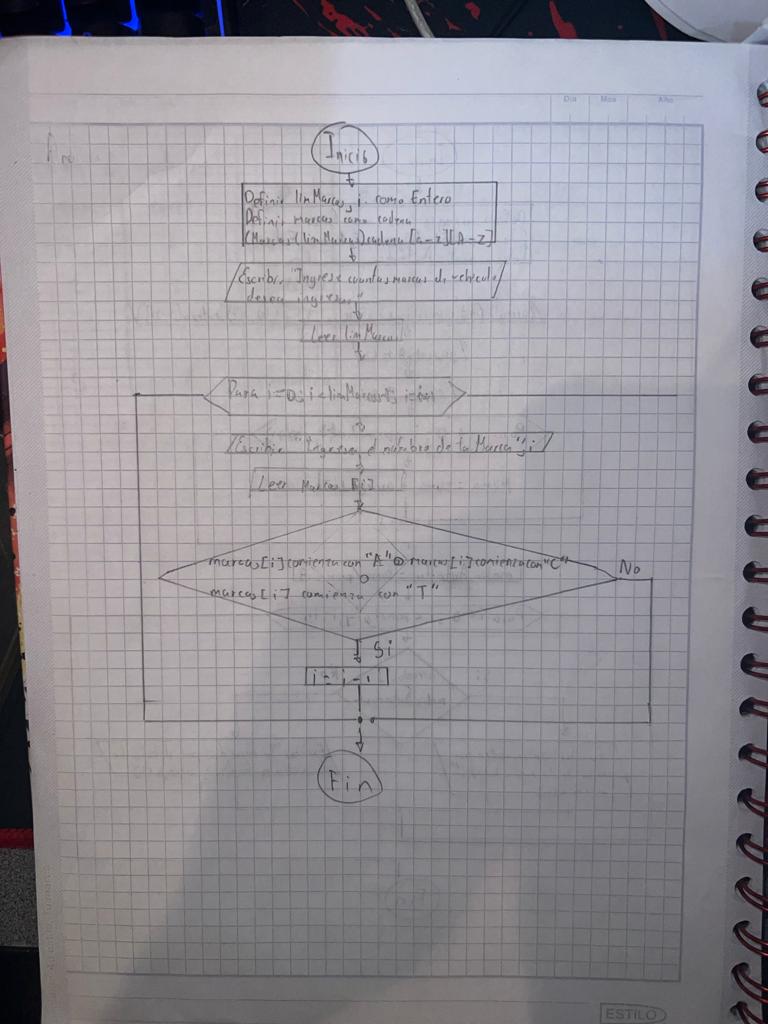 Día Mes Año
Inicio
Definir limMarcas, i como Entero
Definir marcas como cadena
(Marcas(limMarca)cadena [a-z][A-Z]
Escribir "Ingrese cuantas marcas de vehiculo
desea ingresar"
Leer limMarca
Para i=0; i<limMarcas
Escribir "Ingresa el nombre de la Marca", i
Leer Marcas [i]
marcas[i] comienza con "A" o marcas[i] comienza con "C"
o
marcas[i] comienza con "T"
No
Si
i = i - 1
Fin
ESTILO